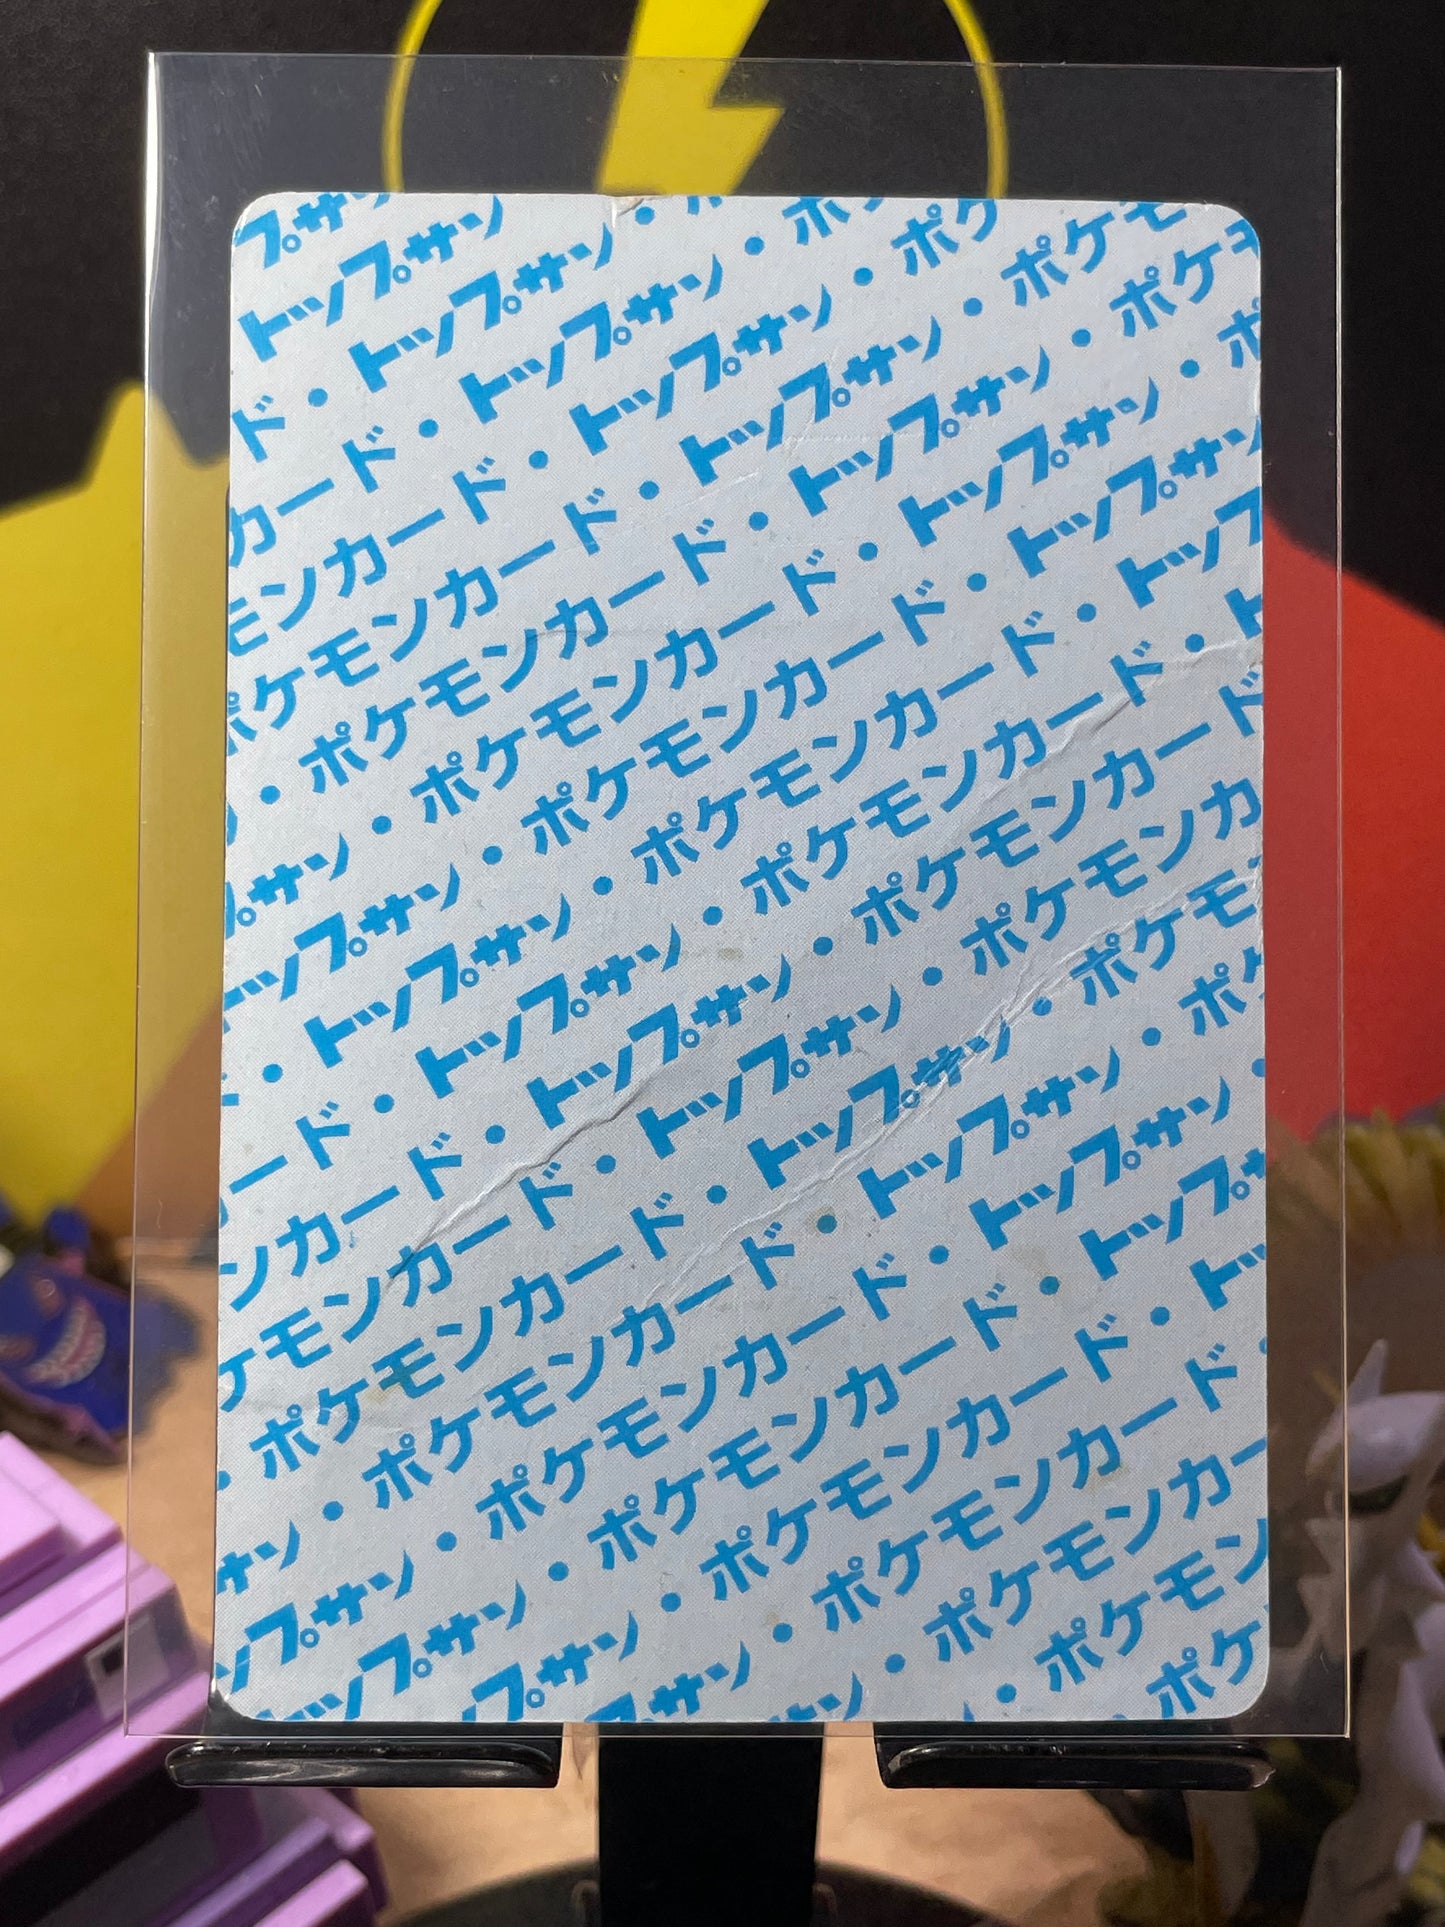 プサ
トップサン
ド・トップサン・
カード・トップサン・ポ
モンカード・トップサン・ポケ
ポケモンカード・トップサン・ポケモ
・ポケモンカード・トップサン・ポケモ
プサン・ポケモンカード・トップサン・ポ
ップサン・ポケモンカード・トップサン
・トップサン・ポケモンカード・トップ
ード・トップサン・ポケモンカード・ト
ンカード・トップサン・ポケモンカード
ケモンカード・トップサン・ポケモンカ
・ポケモンカード・トップサン・ポケモ
サン・ポケモンカード・トップサン・ポケ
ップサン・ポケモンカード・トップサン・
トップサン・ポケモンカード・トップサ
プサン・ポケモンカード・ト
サン・ポケモンカード・
ン・ポケモンカー
・ポケモン
ポケ